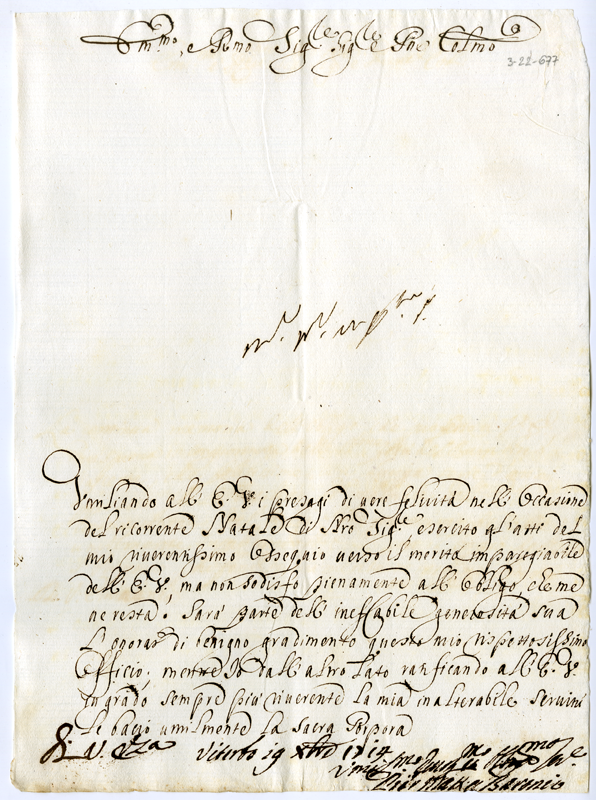 Em.mo, e Rmo Sig.re Sig.re Pne Colmo
3-22-677
Umiliando all' E. V. i presagi di vere felicità nell' Occasione
del ricorrente Natale di Nro Sig.re esercito gl'atti del
mio riverentissimo Ossequio verso il merito impareggiabile
dell' E. V., ma non sodisfo pienamente all' Obligo, che me
ne resta. Sarà parte dell' ineffabile generosità sua
l'onorar di benigno gradimento questo mio rispettosissimo
Officio; mentre Io dall' altro lato ratificando all' E. V.
in grado sempre più riverente la mia inalterabile servitù
le bacio umilmente la Sacra Porpora
Di V. Eza Viterbo 19 Xbre 1714